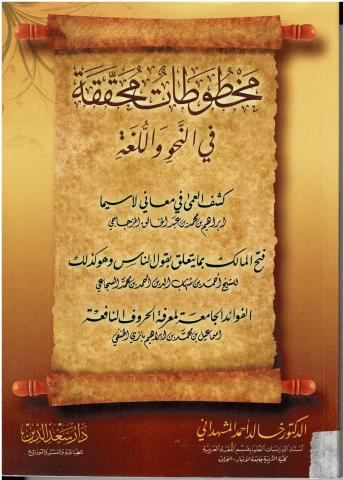 مخطوطات محققة
في النحو واللغة
كشف العمى في معاني لاسيما
ابراهيم بن محمد بن عبد الخالق المزجاجي
فتح المالك بما يتعلق بقول الناس وهو كذلك
للشيخ أحمد بن شهاب الدين أحمد بن محمد السجاعي
الفوائد الجامعة لمعرفة الحروف النافعة
اسماعيل بن محمد بن ابراهيم يازجي الحنفي
الدكتور خالد احمد المشهداني
أستاذ الدراسات العليا بقسم اللغة العربية
كلية التربية جامعة الأنبار - العراق
دار سعد الدين
للطباعة والنشر والتوزيع